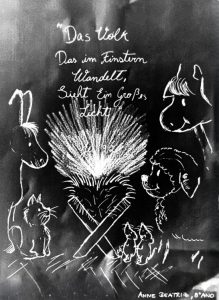 "Das Volk
Das im Finstern
Wandelt,
Sieht Ein Großes
Licht
ANNE BEATRIZ, 8º ANO